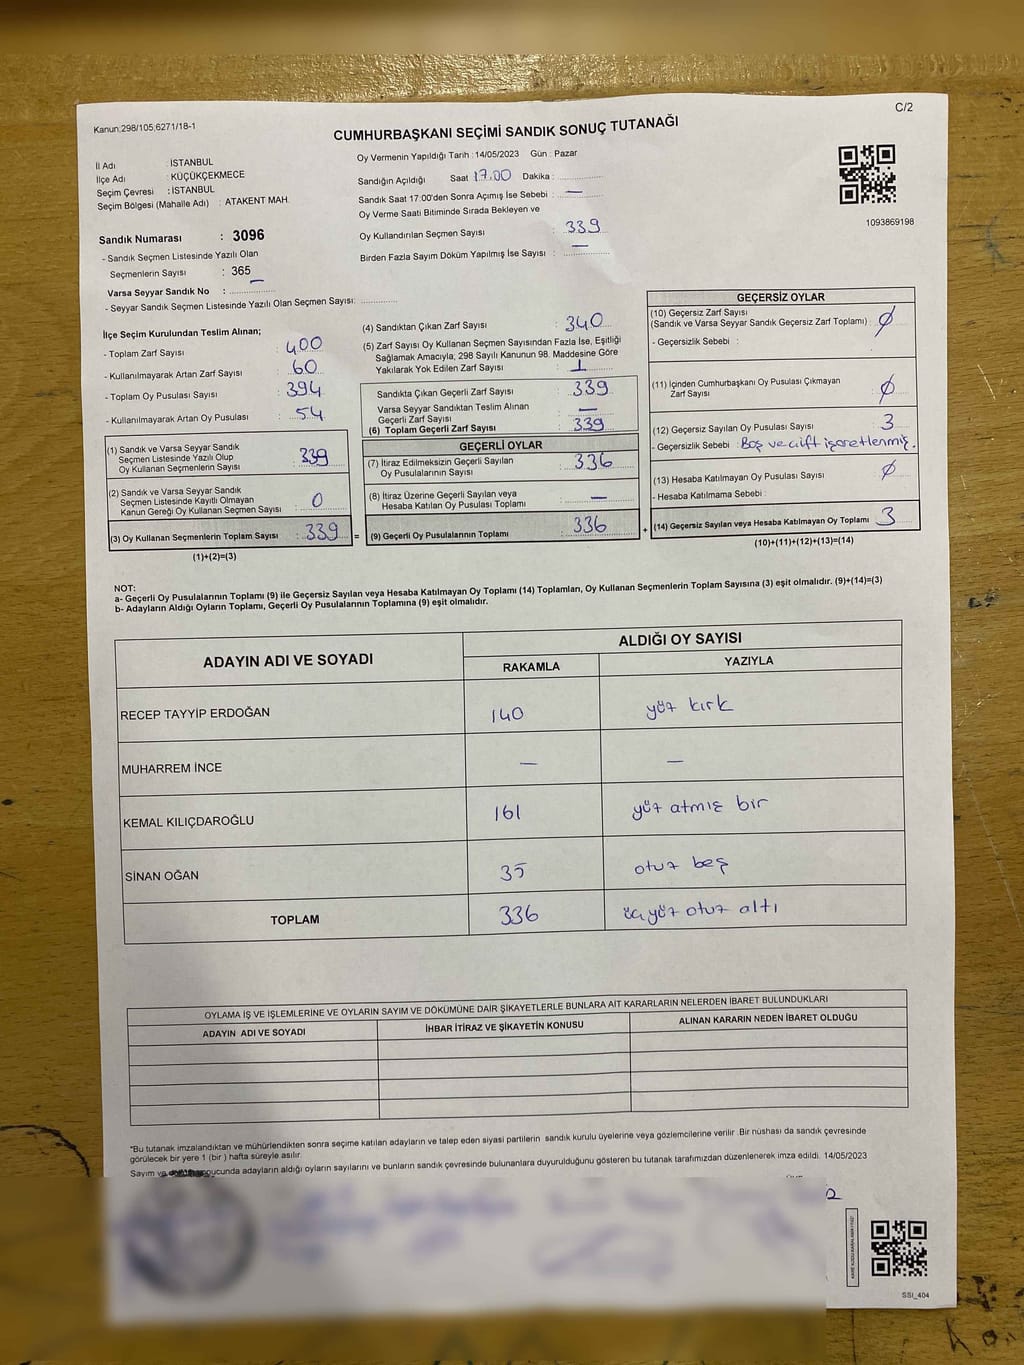 C/2
Kanun;298/105;6271/18-1
CUMHURBAŞKANI SEÇİMİ SANDIK SONUÇ TUTANAĞI
İl Adı : İSTANBUL
İlçe Adı : KÜÇÜKÇEKMECE
Seçim Çevresi : İSTANBUL
Seçim Bölgesi (Mahalle Adı) : ATAKENT MAH.
Sandık Numarası : 3096
- Sandık Seçmen Listesinde Yazılı Olan
Seçmenlerin Sayısı : 365
Varsa Seyyar Sandık No : —
- Seyyar Sandık Seçmen Listesinde Yazılı Olan Seçmen Sayısı:
Oy Vermenin Yapıldığı Tarih : 14/05/2023 Gün : Pazar
Sandığın Açıldığı Saat 17.00 Dakika :
Sandık Saat 17:00'den Sonra Açımış İse Sebebi : —
Oy Verme Saati Bitiminde Sırada Bekleyen ve
Oy Kullandırılan Seçmen Sayısı : 339
Birden Fazla Sayım Döküm Yapılmış İse Sayısı : —
1093869198
İlçe Seçim Kurulundan Teslim Alınan;
- Toplam Zarf Sayısı : 400
- Kullanılmayarak Artan Zarf Sayısı : 60
- Toplam Oy Pusulası Sayısı : 394
- Kullanılmayarak Artan Oy Pusulası : 54
(1) Sandık ve Varsa Seyyar Sandık
Seçmen Listesinde Yazılı Olup
Oy Kullanan Seçmenlerin Sayısı : 339
(2) Sandık ve Varsa Seyyar Sandık
Seçmen Listesinde Kayıtlı Olmayan
Kanun Gereği Oy Kullanan Seçmen Sayısı : 0
(3) Oy Kullanan Seçmenlerin Toplam Sayısı : 339 =
(1)+(2)=(3)
(4) Sandıktan Çıkan Zarf Sayısı : 340
(5) Zarf Sayısı Oy Kullanan Seçmen Sayısından Fazla İse, Eşitliği
Sağlamak Amacıyla; 298 Sayılı Kanunun 98. Maddesine Göre
Yakılarak Yok Edilen Zarf Sayısı : 1
Sandıkta Çıkan Geçerli Zarf Sayısı : 339
Varsa Seyyar Sandıktan Teslim Alınan
Geçerli Zarf Sayısı : —
(6) Toplam Geçerli Zarf Sayısı : 339
GEÇERLİ OYLAR
(7) İtiraz Edilmeksizin Geçerli Sayılan
Oy Pusulalarının Sayısı : 336
(8) İtiraz Üzerine Geçerli Sayılan veya
Hesaba Katılan Oy Pusulası Toplamı : —
(9) Geçerli Oy Pusulalarının Toplamı : 336 +
GEÇERSİZ OYLAR
(10) Geçersiz Zarf Sayısı
(Sandık ve Varsa Seyyar Sandık Geçersiz Zarf Toplamı) : Ø
- Geçersizlik Sebebi :
(11) İçinden Cumhurbaşkanı Oy Pusulası Çıkmayan
Zarf Sayısı : Ø
(12) Geçersiz Sayılan Oy Pusulası Sayısı : 3
- Geçersizlik Sebebi : Boş ve çift işaretlenmiş.
(13) Hesaba Katılmayan Oy Pusulası Sayısı : Ø
- Hesaba Katılmama Sebebi :
(14) Geçersiz Sayılan veya Hesaba Katılmayan Oy Toplamı : 3
(10)+(11)+(12)+(13)=(14)
NOT:
a- Geçerli Oy Pusulalarının Toplamı (9) ile Geçersiz Sayılan veya Hesaba Katılmayan Oy Toplamı (14) Toplamları, Oy Kullanan Seçmenlerin Toplam Sayısına (3) eşit olmalıdır. (9)+(14)=(3)
b- Adayların Aldığı Oyların Toplamı, Geçerli Oy Pusulalarının Toplamına (9) eşit olmalıdır.
ADAYIN ADI VE SOYADI ALDIĞI OY SAYISI
RAKAMLA YAZIYLA
RECEP TAYYİP ERDOĞAN 140 yüz kırk
MUHARREM İNCE — —
KEMAL KILIÇDAROĞLU 161 yüz atmış bir
SİNAN OĞAN 35 otuz beş
TOPLAM 336 üçyüz otuz altı
OYLAMA İŞ VE İŞLEMLERİNE VE OYLARIN SAYIM VE DÖKÜMÜNE DAİR ŞİKAYETLERLE BUNLARA AİT KARARLARIN NELERDEN İBARET BULUNDUKLARI
ADAYIN ADI VE SOYADI İHBAR İTİRAZ VE ŞİKAYETİN KONUSU ALINAN KARARIN NEDEN İBARET OLDUĞU
*Bu tutanak imzalandıktan ve mühürlendikten sonra seçime katılan adayların ve talep eden siyasi partilerin sandık kurulu üyelerine veya gözlemcilerine verilir .Bir nüshası da sandık çevresinde
görülecek bir yere 1 (bir ) hafta süreyle asılır.
Sayım ve adayların aldığı oyların sayılarını ve bunların sandık çevresinde bulunanlara duyurulduğunu gösteren bu tutanak tarafımızdan düzenlenerek imza edildi. 14/05/2023
SSI_404